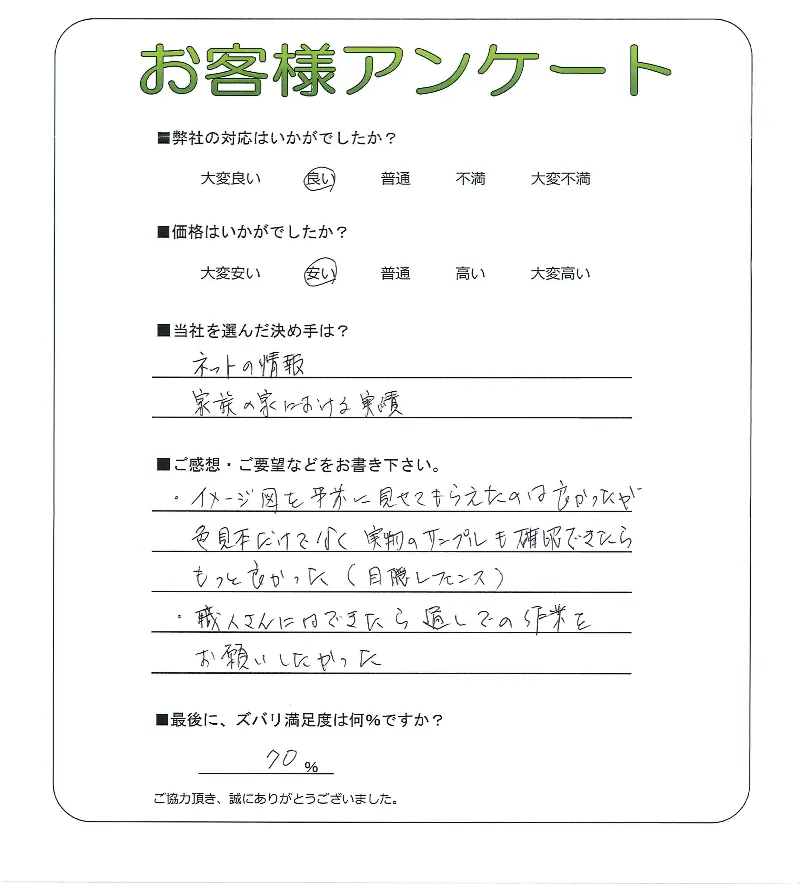 お客様アンケート
■弊社の対応はいかがでしたか？
大変良い 良い 普通 不満 大変不満
■価格はいかがでしたか？
大変安い 安い 普通 高い 大変高い
■当社を選んだ決め手は？
ネットの情報
家族の家における実績
■ご感想・ご要望などをお書き下さい。
・イメージ図を 見せてもらえたのは良かったが
色見本だけでなく 実物のサンプルも確認できたら
もっと良かった（目隠しフェンス）
・職人さんにはできたら通しでの作業を
お願いしたかった
■最後に、ズバリ満足度は何%ですか？
70%
ご協力頂き、誠にありがとうございました。